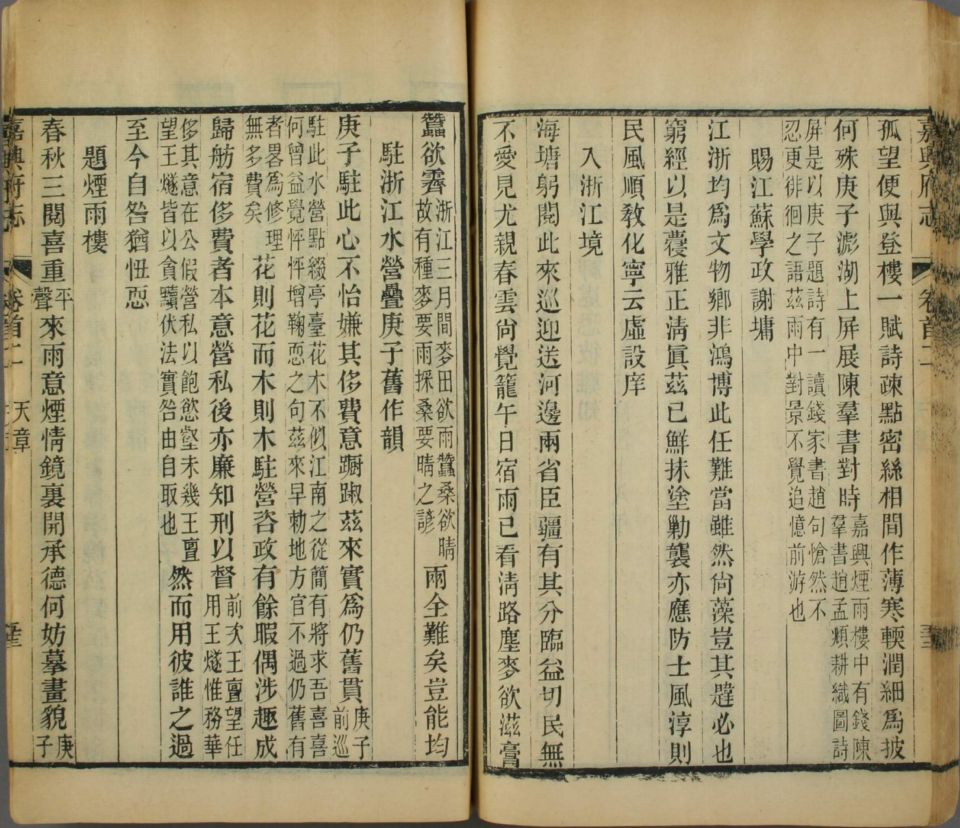 嘉興府志 卷首二
孤望便與登樓一賦詩疎點密絲相間作薄寒輭潤細爲披
何殊庚子澎湖上屏展陳羣書對時嘉興煙雨樓中有錢陳
羣書趙孟頫耕織圖詩
屏是以庚子題詩有一讀錢家書趙句愴然不
忍更徘徊之語茲雨中對景不覺追憶前游也
賜江蘇學政謝墉
江浙均爲文物鄉非鴻博此任難當雖然尙藻豈其韙必也
窮經以是蘉雅正淸眞茲已鮮抹塗勦襲亦應防士風淳則
民風順敎化寧云虛設庠
入浙江境
海塘躬閱此來巡迎送河邊兩省臣疆有其分臨益切民無
不愛見尤親春雲尙覺籠午日宿雨已看淸路塵麥欲滋膏
蠶欲霽浙江三月間麥田欲雨蠶桑欲晴
故有種麥要雨採桑要晴之諺雨全難矣豈能均
駐浙江水營疊庚子舊作韻
庚子駐此心不怡嫌其侈費意蹰踧茲來實爲仍舊貫庚子
前巡
駐此水營點綴亭臺花木不似江南之從簡有將求吾喜喜
何曾益覺怦怦增鞠恧之句茲來早勅地方官不過仍舊有
者畧爲修理
無多費矣花則花而木則木駐營咨政有餘暇偶涉趣成
歸舫宿侈費者本意營私後亦廉知刑以督前次王亶望任
用王燧惟務華
侈其意在公假營私以飽慾壑未幾王亶
望王燧皆以貪黷伏法實咎由自取也然而用彼誰之過
至今自咎猶忸恧
題煙雨樓
春秋三閱喜重平
聲來雨意煙情鏡裏開承德何妨摹畫貌庚
子
嘉興府志 卷首二 天章